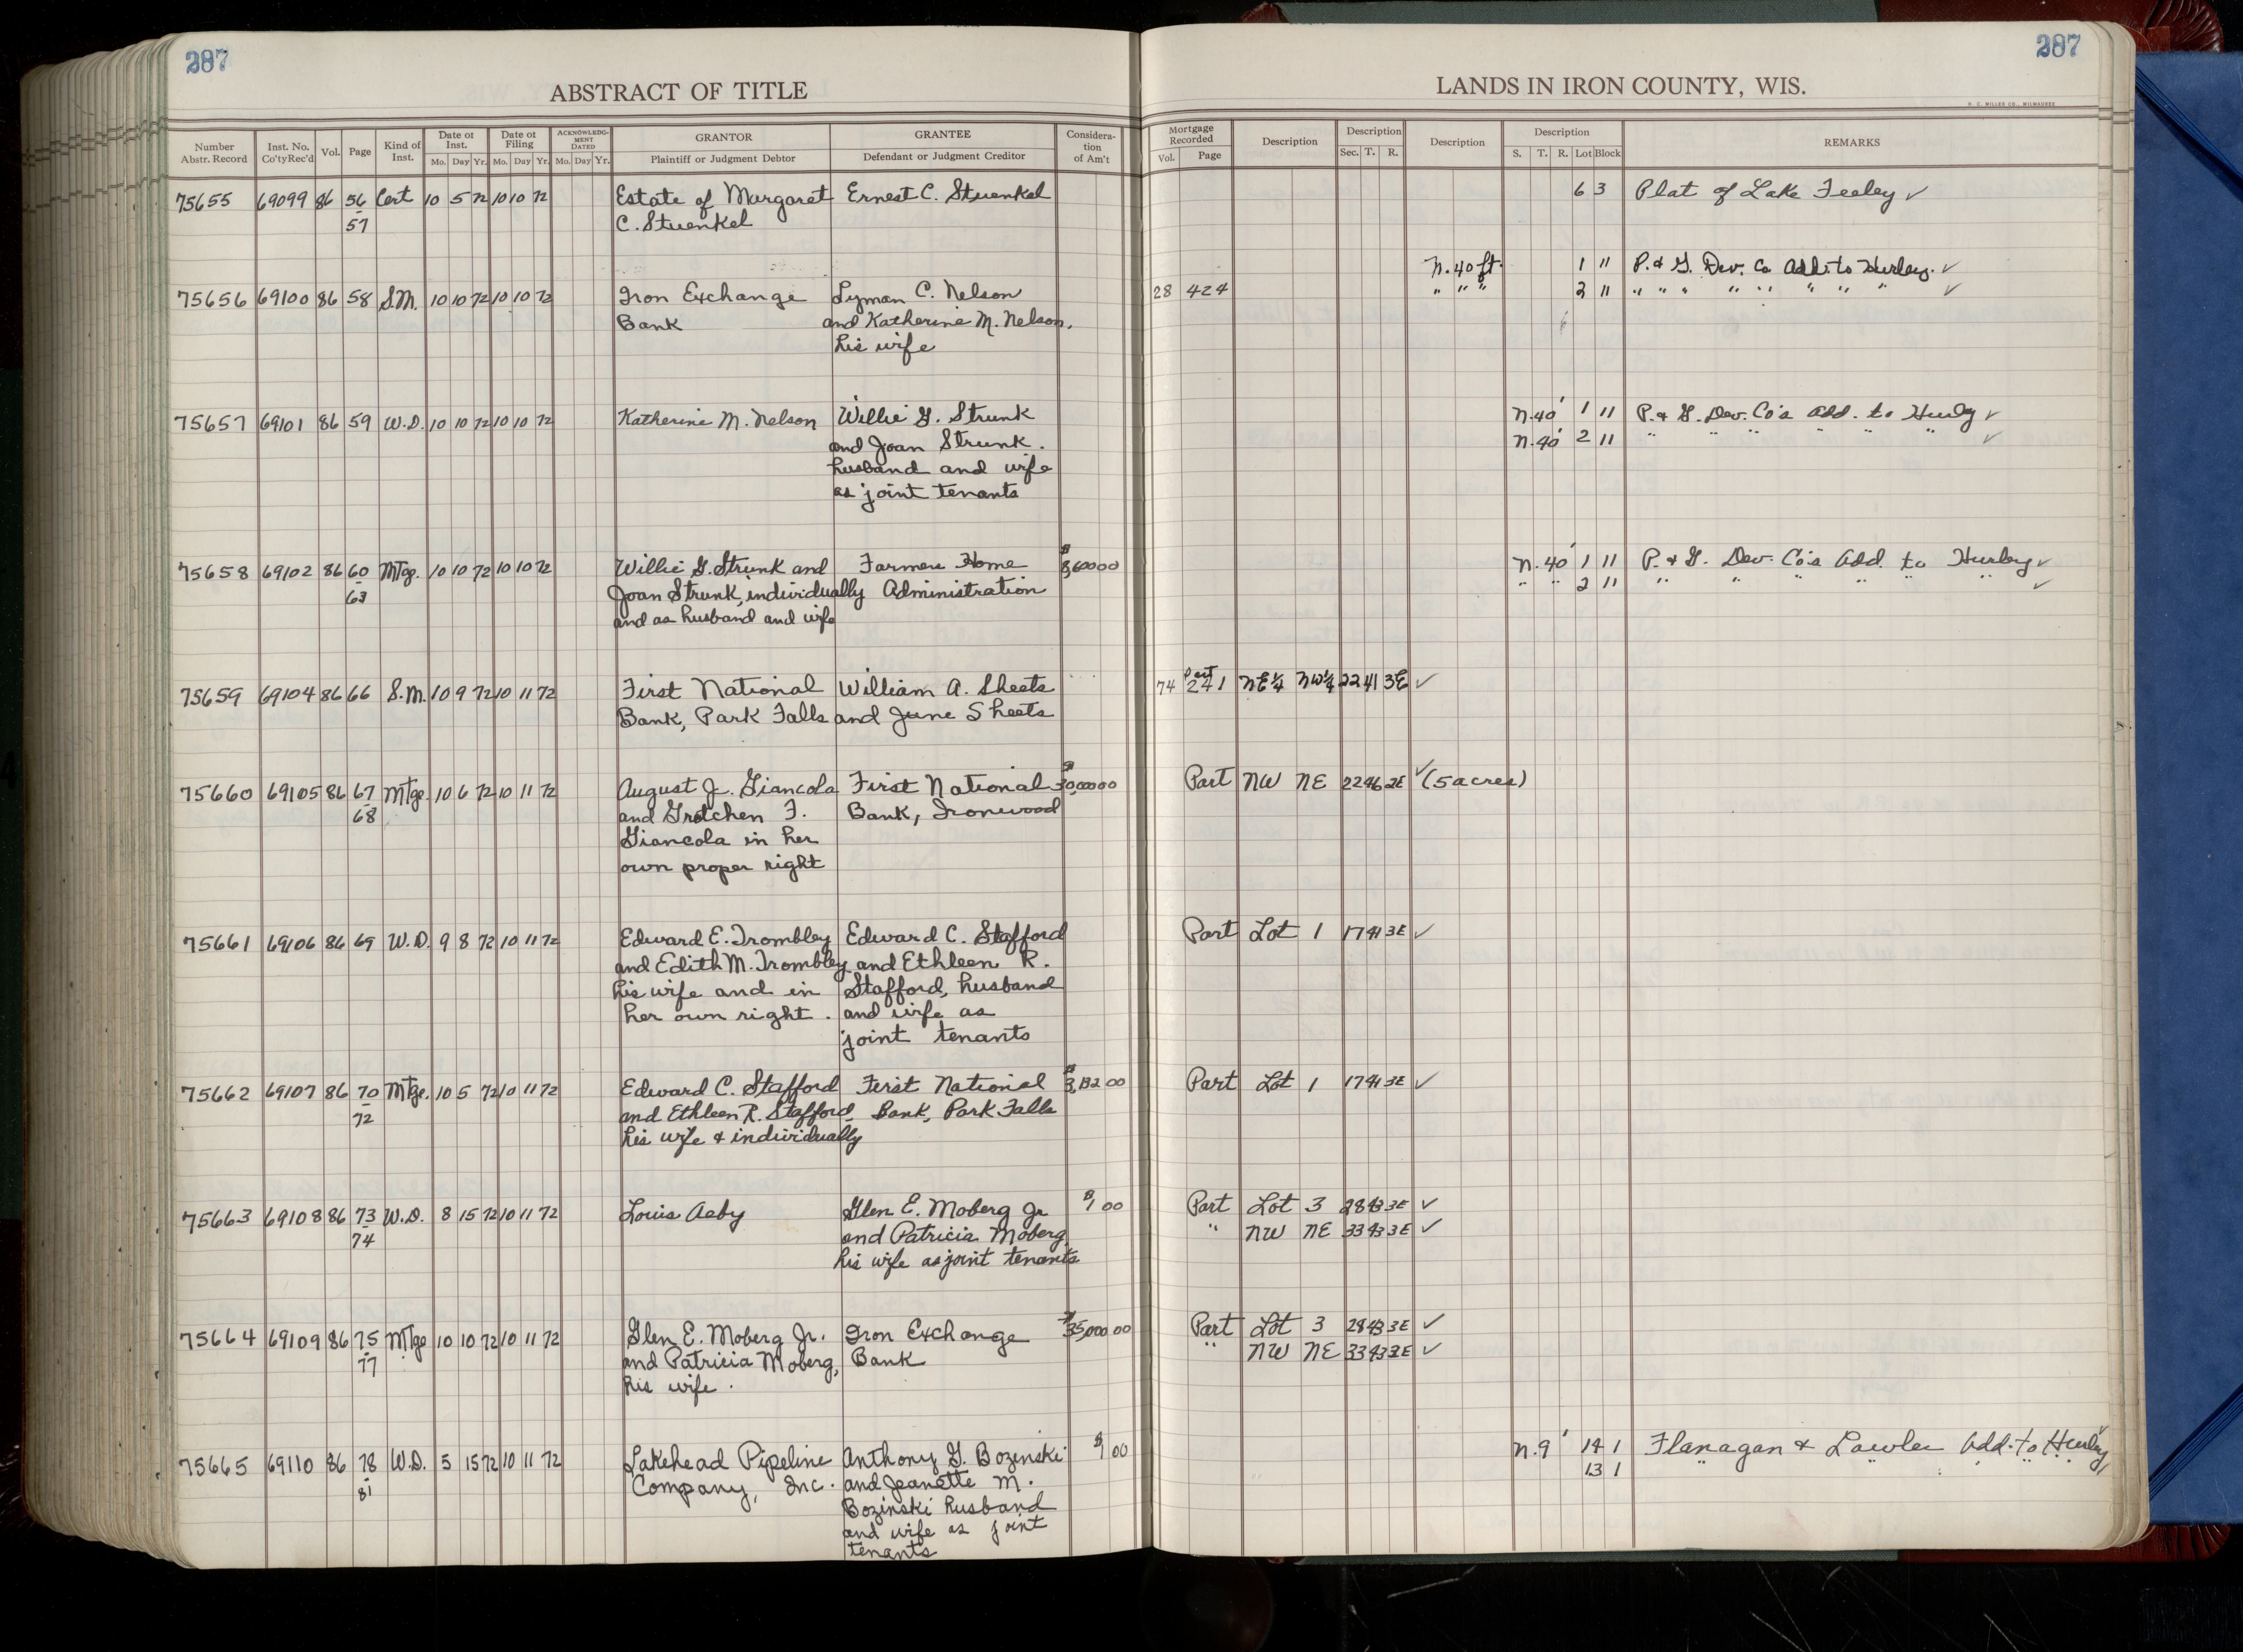 287
287
ABSTRACT OF TITLE
LANDS IN IRON COUNTY, WIS.
H. C. MILLER CO., MILWAUKEE
Number Abstr. Record Inst. No. Co'tyRec'd Vol. Page Kind of Inst. Date of Inst. Mo. Day Yr. Date of Filing Mo. Day Yr. ACKNOWLEDGMENT DATED Mo. Day Yr. GRANTOR Plaintiff or Judgment Debtor GRANTEE Defendant or Judgment Creditor Consideration of Am't Mortgage Recorded Vol. Page Description Description Sec. T. R. Description Description S. T. R. Lot Block REMARKS
75655 69099 86 56 Cert 10 5 72 10 10 72 Estate of Margaret Ernest C. Stuenkel 6 3 Plat of Lake Feeley ✓
57 C. Stuenkel
N. 40 ft. 1 11 P. & G. Dev. Co Add. to Hurley. ✓
75656 69100 86 58 S.M. 10 10 72 10 10 72 Iron Exchange Lyman C. Nelson 28 424 " " " 2 11 " " " " " " " " ✓
Bank and Katherine M. Nelson,
his wife
75657 69101 86 59 W.D. 10 10 72 10 10 72 Katherine M. Nelson Willie G. Strunk N. 40' 1 11 P. & G. Dev. Co's Add. to Hurley ✓
and Joan Strunk. N. 40' 2 11 " " " " " " ✓
husband and wife
as joint tenants
75658 69102 86 60 Mtge. 10 10 72 10 10 72 Willie G. Strunk and Farmers Home $8,600 00 N. 40' 1 11 P. & G. Dev. Co's Add. to Hurley ✓
63 Joan Strunk, individually Administration " " 2 11 " " " " " " ✓
and as husband and wife
75659 69104 86 66 S.M. 10 9 72 10 11 72 First National William A. Sheets 74 241 Part NE¼ NW¼ 22 41 3E ✓
Bank, Park Falls and June Sheets
75660 69105 86 67 Mtge. 10 6 72 10 11 72 August J. Giancola First National $30,000 00 Part NW NE 22 46 2E ✓ (5 acres)
68 and Gretchen F. Bank, Ironwood
Giancola in her
own proper right
75661 69106 86 69 W.D. 9 8 72 10 11 72 Edward E. Trombley Edward C. Stafford Part Lot 1 17 41 3E ✓
and Edith M. Trombley and Ethleen R.
his wife and in Stafford, husband
her own right. and wife as
joint tenants
75662 69107 86 70 Mtge. 10 5 72 10 11 72 Edward C. Stafford First National $3,132 00 Part Lot 1 17 41 3E ✓
72 and Ethleen R. Stafford Bank, Park Falls
his wife & individually
75663 69108 86 73 W.D. 8 15 72 10 11 72 Louis Aeby Glen E. Moberg Jr $1 00 Part Lot 3 28 43 3E ✓
74 and Patricia Moberg " NW NE 33 43 3E ✓
his wife as joint tenants
75664 69109 86 75 Mtge 10 10 72 10 11 72 Glen E. Moberg Jr. Iron Exchange $35,000 00 Part Lot 3 28 43 3E ✓
77 and Patricia Moberg, Bank " NW NE 33 43 3E ✓
his wife.
75665 69110 86 78 W.D. 5 15 72 10 11 72 Lakehead Pipeline Anthony G. Bozinski $1 00 N. 9' 14 1 Flanagan & Lawler Add. to Hurley
81 Company, Inc. and Jeanette M. 13 1 " " " " "
Bozinski husband
and wife as joint
tenants